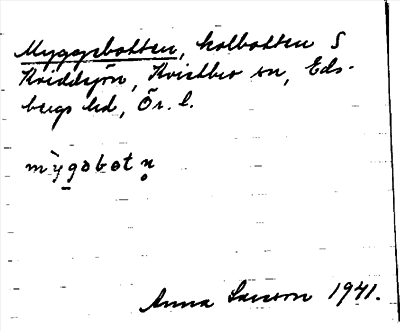 Myggebotten, kolbotten S
Kviddsjön, Kvistbro sn, Eds-
bergs hd, Ör. l.
mỳgəbotn̥
Anna Larsson 1941.